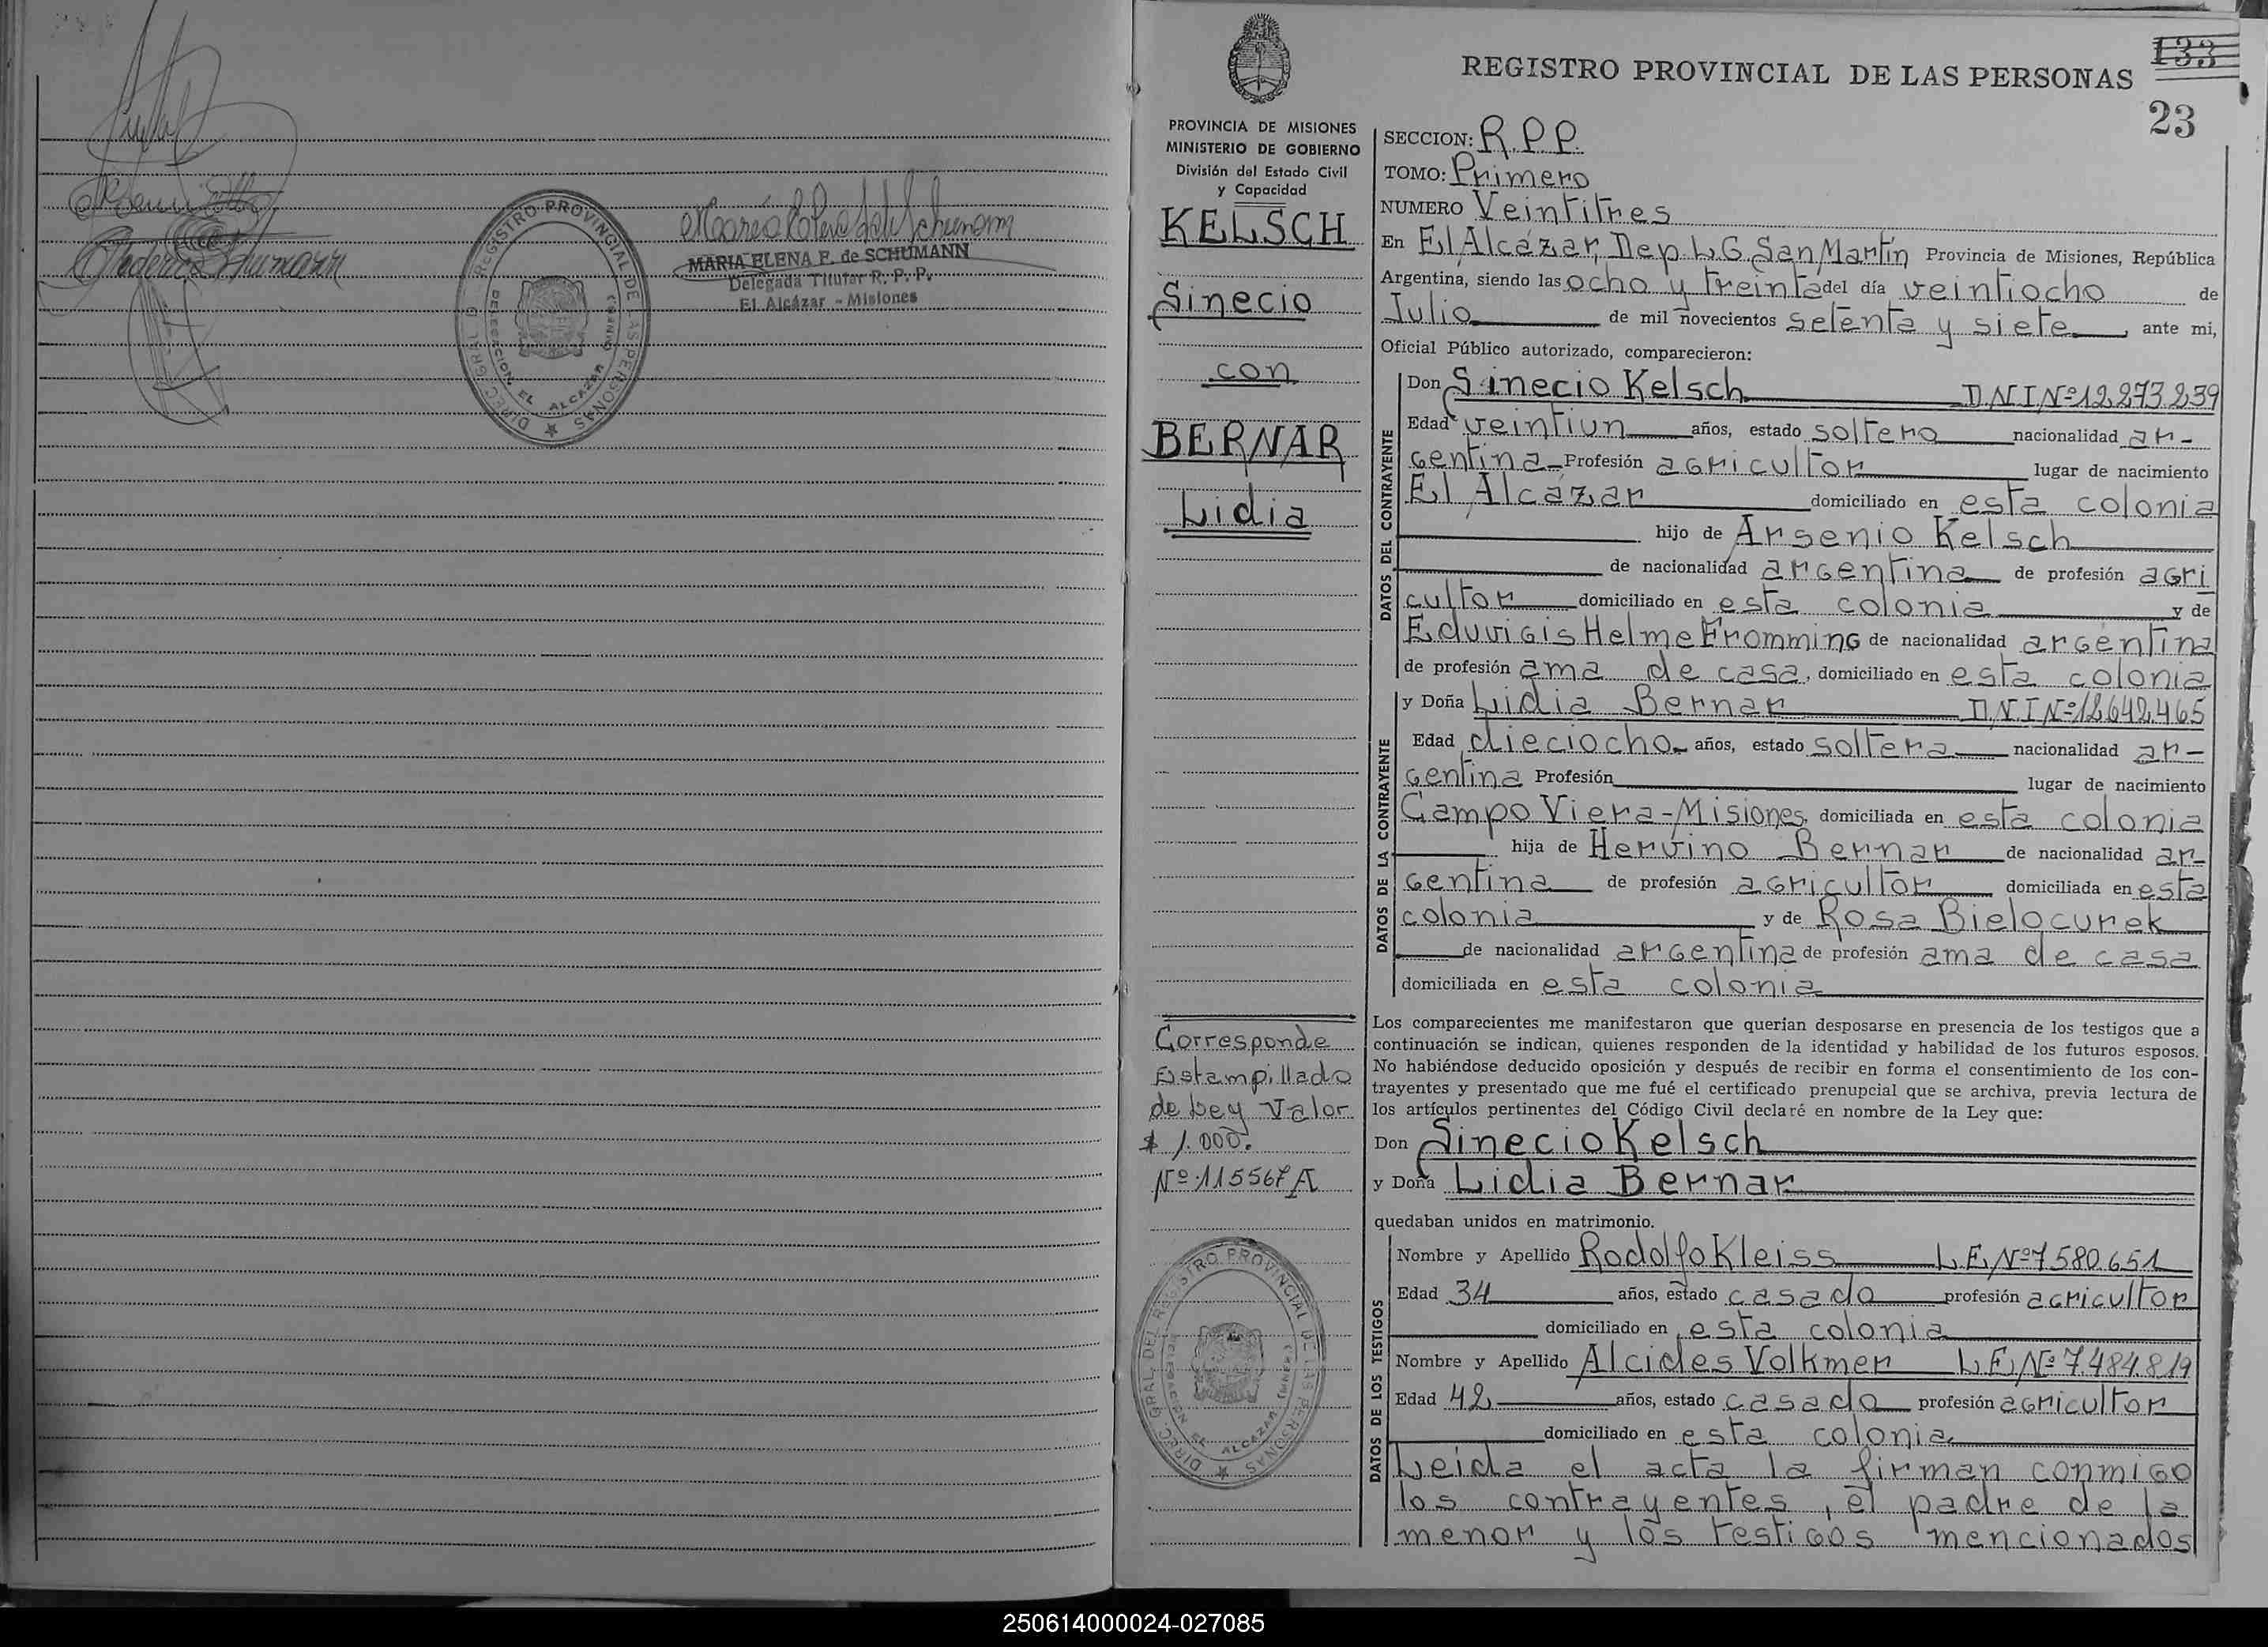 María Elena F. de Schumann
MARIA ELENA F. de SCHUMANN
Delegada Titular R. P. P.
El Alcázar - Misiones
REGISTRO PROVINCIAL DE LAS PERSONAS
DELEGACION EL ALCAZAR
133
REGISTRO PROVINCIAL DE LAS PERSONAS
23
PROVINCIA DE MISIONES
MINISTERIO DE GOBIERNO
División del Estado Civil
y Capacidad
KELSCH
Sinecio
con
BERNAR
Lidia
Corresponde
Estampillado
de Ley Valor
$ 1.000.
DIREC. GRAL. DEL REGISTRO PROVINCIAL DE LAS PERSONAS
EL ALCAZAR
SECCION: R.P.P.
TOMO: Primero
NUMERO Veintitres
En El Alcázar, Dep. L.G. San Martín Provincia de Misiones, República
Argentina, siendo las ocho y treinta del día veintiocho de
Julio de mil novecientos setenta y siete, ante mi,
Oficial Público autorizado, comparecieron:
DATOS DEL CONTRAYENTE
Don Sinecio Kelsch D.N.I Nº 12.273.239
Edad veintiun años, estado soltero nacionalidad ar-
gentina Profesión agricultor lugar de nacimiento
El Alcázar domiciliado en esta colonia
hijo de Arsenio Kelsch
de nacionalidad argentina de profesión agri
cultor domiciliado en esta colonia y de
Eduvigis Helme Fromming de nacionalidad argentina
de profesión ama de casa, domiciliado en esta colonia
DATOS DE LA CONTRAYENTE
y Doña Lidia Bernar D.N.I Nº 12.642.465
Edad dieciocho años, estado soltera nacionalidad ar-
gentina Profesión lugar de nacimiento
Campo Viera-Misiones, domiciliada en esta colonia
hija de Hervino Bernar de nacionalidad ar-
gentina de profesión agricultor domiciliada en esta
colonia y de Rosa Bielocurek
de nacionalidad argentina de profesión ama de casa
domiciliada en esta colonia
Los comparecientes me manifestaron que querian desposarse en presencia de los testigos que a
continuación se indican, quienes responden de la identidad y habilidad de los futuros esposos.
No habiéndose deducido oposición y después de recibir en forma el consentimiento de los con-
trayentes y presentado que me fué el certificado prenupcial que se archiva, previa lectura de
los artículos pertinentes del Código Civil declaré en nombre de la Ley que:
Don Sinecio Kelsch
y Doña Lidia Bernar
quedaban unidos en matrimonio.
DATOS DE LOS TESTIGOS
Nombre y Apellido Rodolfo Kleiss L.E. Nº 7.580.651
Edad 34 años, estado casado profesión agricultor
domiciliado en esta colonia
Nombre y Apellido Alcides Volkmer L.E. Nº 7.484.819
Edad 42 años, estado casado profesión agricultor
domiciliado en esta colonia
Leida el acta la firman conmigo
los contrayentes, el padre de la
menor y los testigos mencionados
250614000024-027085